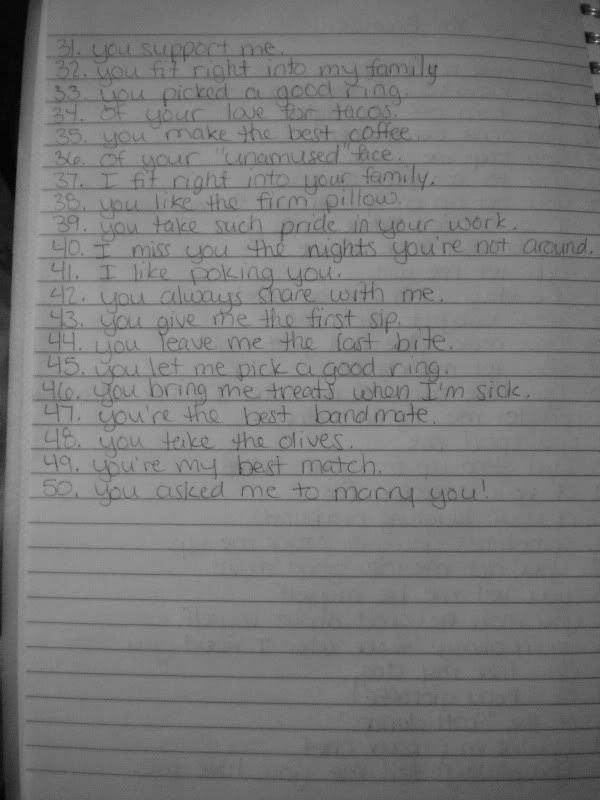 31. you support me.
32. you fit right into my family
33. you picked a good ring.
34. of your love for tacos.
35. you make the best coffee.
36. of your "unamused" face.
37. I fit right into your family.
38. you like the firm pillow.
39. you take such pride in your work.
40. I miss you the nights you're not around.
41. I like poking you.
42. you always share with me.
43. you give me the first sip.
44. you leave me the last bite.
45. you let me pick a good ring.
46. you bring me treats when I'm sick.
47. you're the best bandmate.
48. you take the olives.
49. you're my best match.
50. you asked me to marry you!